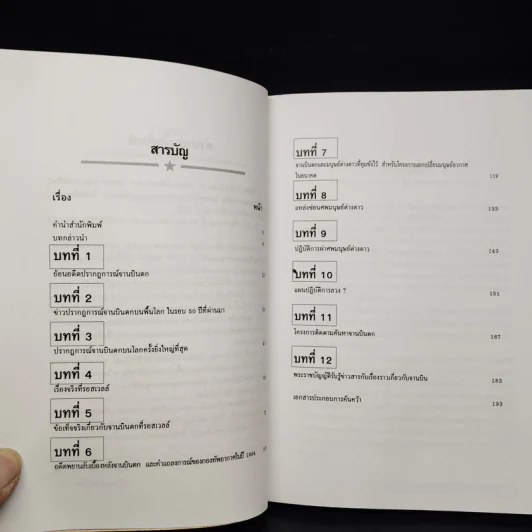 สารบัญ
เรื่อง
หน้า
คำนำสำนักพิมพ์
บทกล่าวนำ
บทที่ 1
ย้อนอดีตปรากฏการณ์จานบินตก
บทที่ 2
ข่าวปรากฏการณ์จานบินตกบนพื้นโลก ในรอบ 50 ปีที่ผ่านมา
บทที่ 3
ปรากฏการณ์จานบินตกบนโลกครั้งยิ่งใหญ่ที่สุด
บทที่ 4
เรื่องจริงที่รอสเวลล์
บทที่ 5
ข้อเท็จจริงเกี่ยวกับจานบินตกที่รอสเวลล์
บทที่ 6
อดีตพยานลับเบื้องหลังจานบินตก และคำแถลงการณ์ของกองทัพอากาศในปี 1994
บทที่ 7
จานบินตกและมนุษย์ต่างดาวที่ถูกขังไว้ สำหรับโครงการแลกเปลี่ยนมนุษย์อวกาศ
ในอนาคต 119
บทที่ 8
แหล่งซ่อนศพมนุษย์ต่างดาว 133
บทที่ 9
ปฏิบัติการผ่าศพมนุษย์ต่างดาว 143
บทที่ 10
แผนปฏิบัติการลวง ? 151
บทที่ 11
โครงการติดตามค้นหาจานบินตก 167
บทที่ 12
พระราชบัญญัติรับรู้ข่าวสารกับเรื่องราวเกี่ยวกับจานบิน 183
เอกสารประกอบการค้นคว้า 193